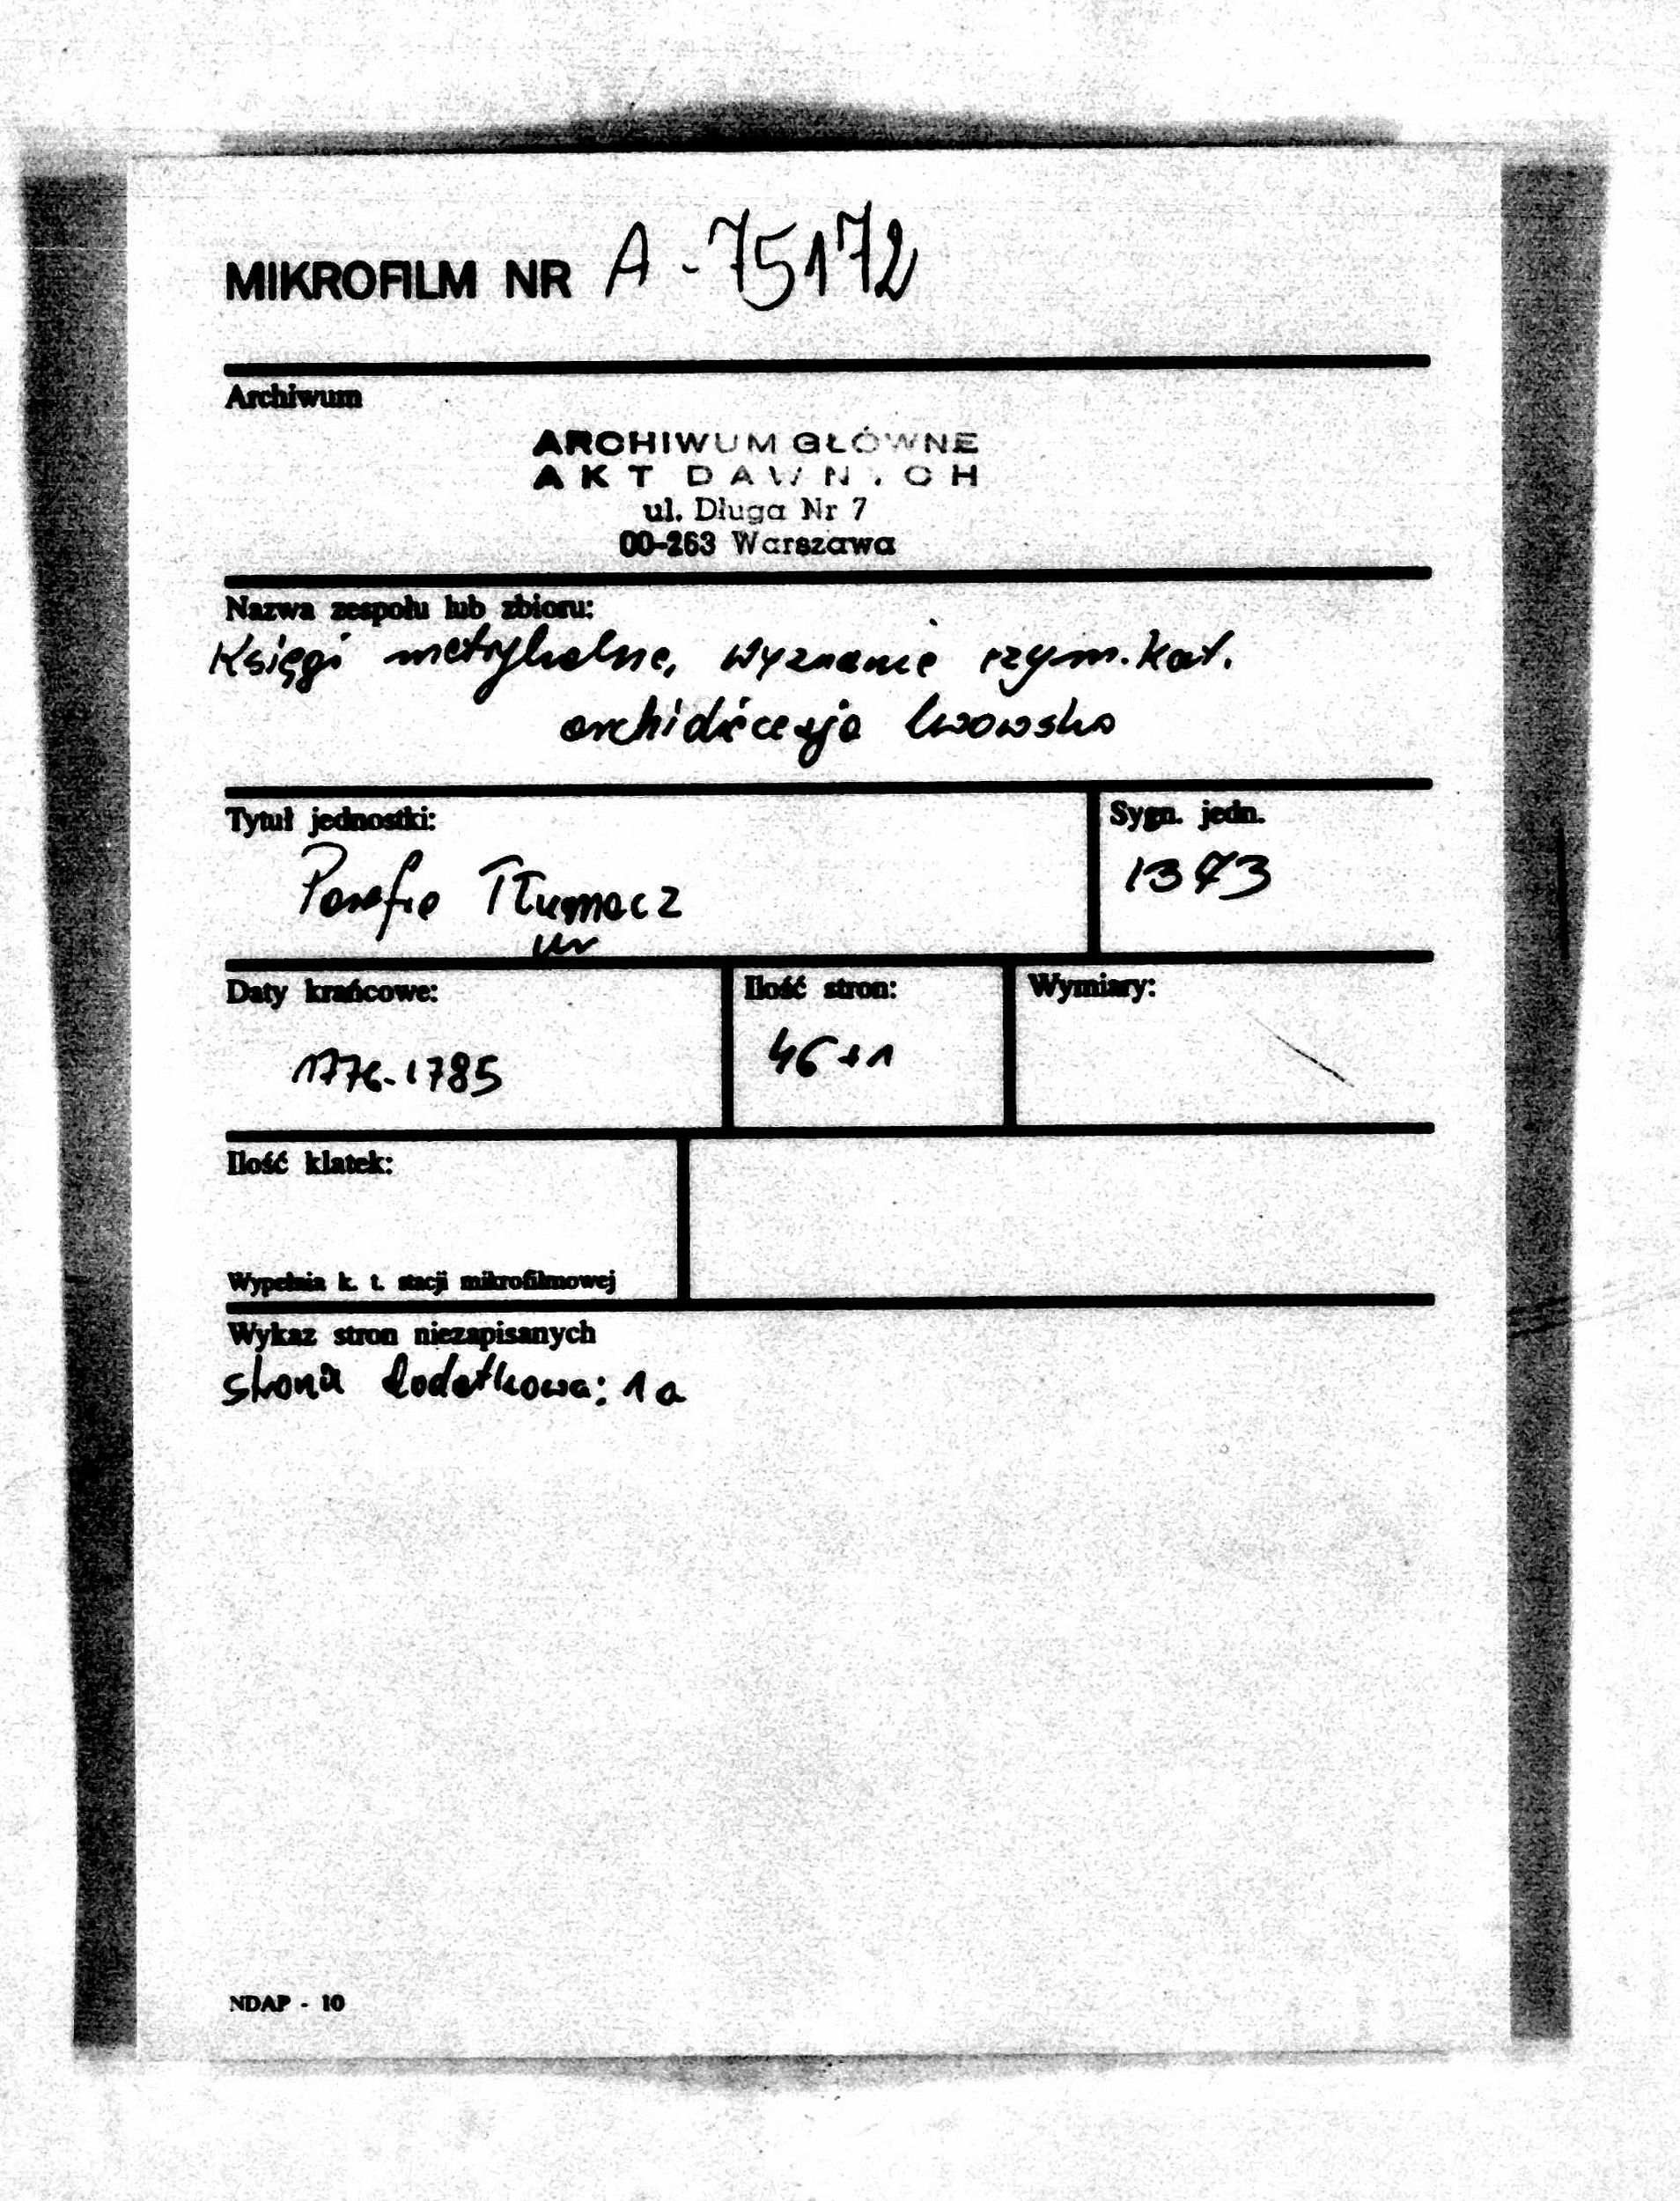 MIKROFILM NR A-75172
Archiwum
ARCHIWUM GŁÓWNE
AKT DAWNYCH
ul. Długa Nr 7
00-263 Warszawa
Nazwa zespołu lub zbioru:
Księgi metrykalne, wyznanie rzym. kat.
archidiecezja lwowska
Tytuł jednostki:
Sygn. jedn.
Parafia Tłumacz
1373
ur
Daty krańcowe:
Ilość stron:
Wymiary:
1776-1785
46+1
Ilość klatek:
Wypełnia k. t. stacji mikrofilmowej
Wykaz stron niezapisanych
strona dodatkowa: 1a
NDAP - 10